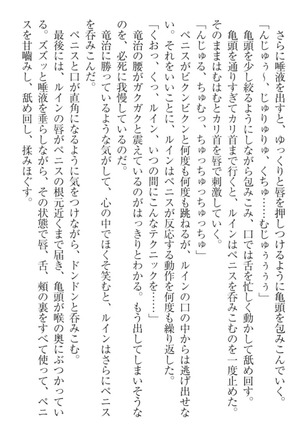 さらに唾液を出すと、ゆっくりと唇を押しつけるように亀頭を包みこんでいく。
「んじゅぅ〜、じゅりゅりゅ、くちゅっ……むじゅぅぅぅぅ」
亀頭を少し絞るようにしながら包みこみ、口では舌を忙しく動かして舐め回す。
亀頭を通りすぎてカリ首まで行くと、ルインはペニスを呑みこむのを一度止めた。
そのままはむはむとカリ首を唇で刺激していく。
「んじゅる、ちゅむっ、ちゅっちゅっちゅっちゅ」
ペニスがビクンビクンと何度も跳ねるが、ルインの口の中からは逃げ出せない。それをいいことに、ルインはペニスが反応する動作を何度も繰り返した。
「くおっ、くっ、ルイン、いつの間にこんなテクニックを……」
竜治の腰がガクガクと震えているのがはっきりとわかる。もう出してしまいそうなのを、必死に我慢しているのだ。
竜治に勝っているような気がして、心の中でほくそ笑むと、ルインはさらにペニスを呑みこんだ。
ペニスと口が直角になるように気をつけながら、ドンドンと呑みこむ。
最後には、ルインの唇がペニスの根元近くまで届き、亀頭が喉の奥にぶつかっている。ズズッと唾液を垂らしながら、その状態で唇、舌、頬の裏をすべて使って、ペニスを甘嚙み し、舐め回し、揉みほぐす。